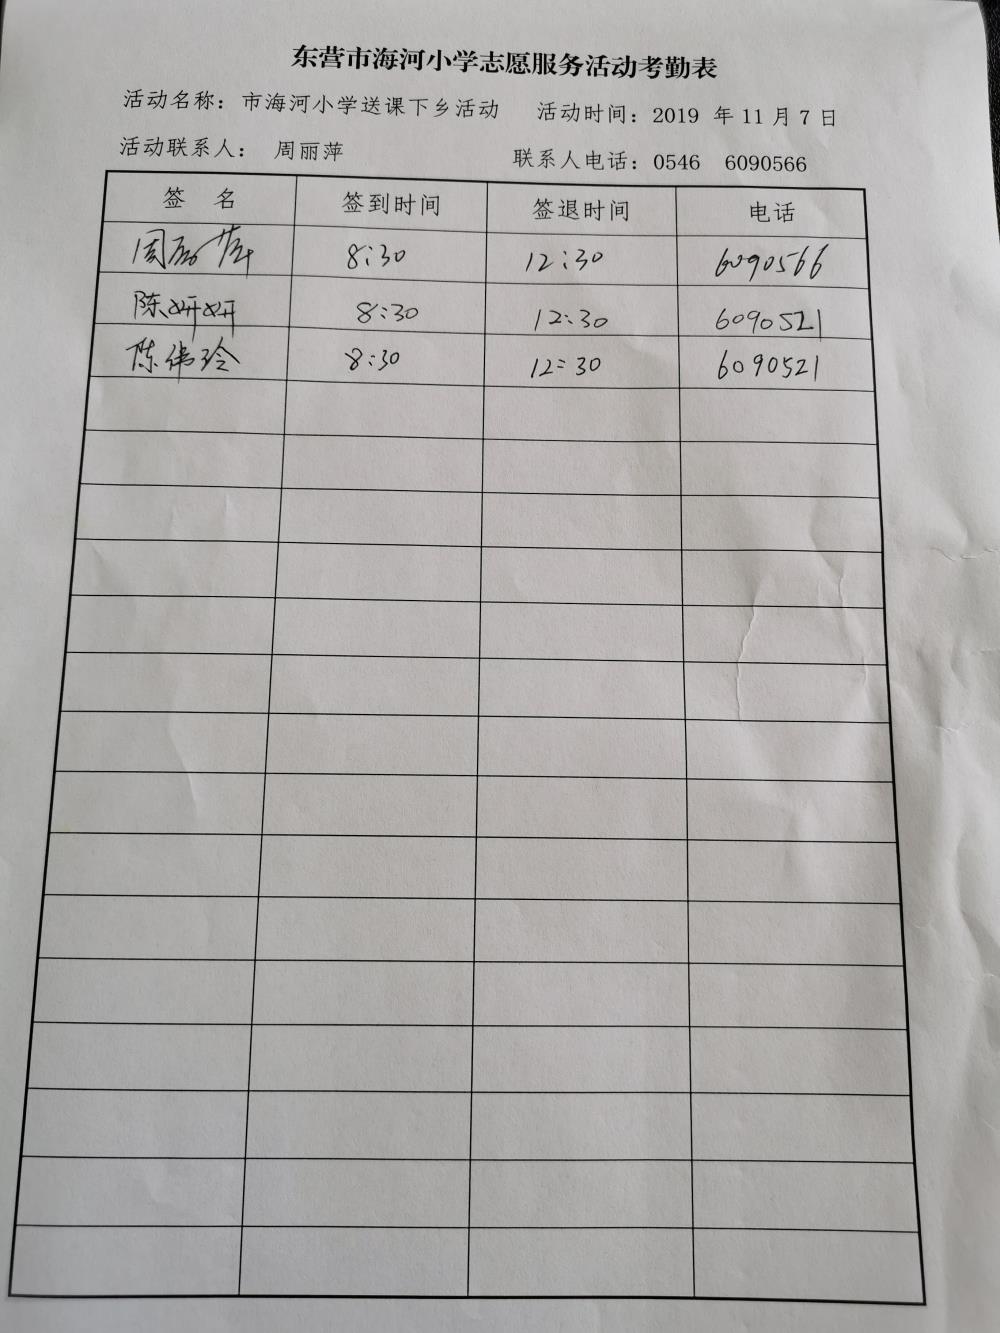 东营市海河小学志愿服务活动考勤表
活动名称：市海河小学送课下乡活动 活动时间：2019 年 11 月 7 日
活动联系人： 周丽萍 联系人电话：0546 6090566
签 名 签到时间 签退时间 电话
周丽萍 8:30 12:30 6090566
陈妍妍 8:30 12:30 6090521
陈伟玲 8:30 12:30 6090521